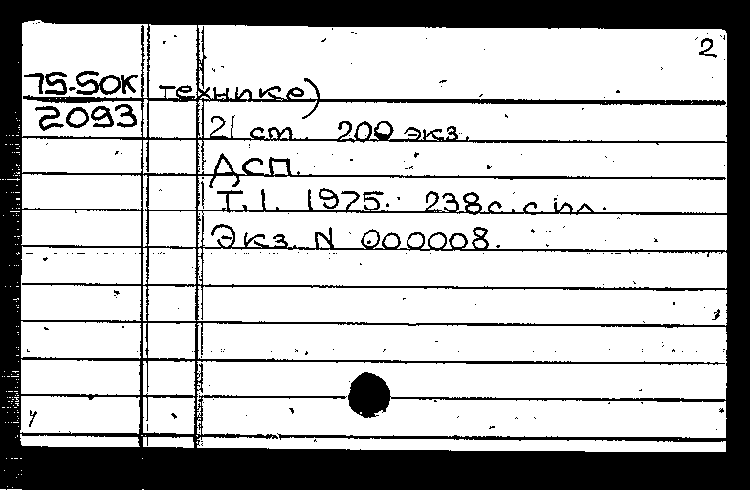 2
75-50К технике)
2093
21 см. 200 экз.
ДСП.
Т.1. 1975. 238с. с ил.
Экз. N 000008.